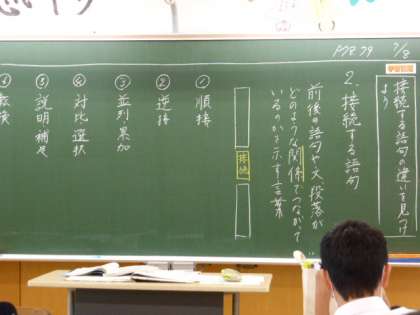 P78 79
7/8
学習問題
接続する語句の違いを見つけ
よう
2. 接続する語句
前後の語句や文、段落が
どのような関係でつながって
いるのかを示す言葉
接続
① 順接
② 逆接
③ 並列・累加
④ 対比・選択
⑤ 説明・補足
⑥ 転換